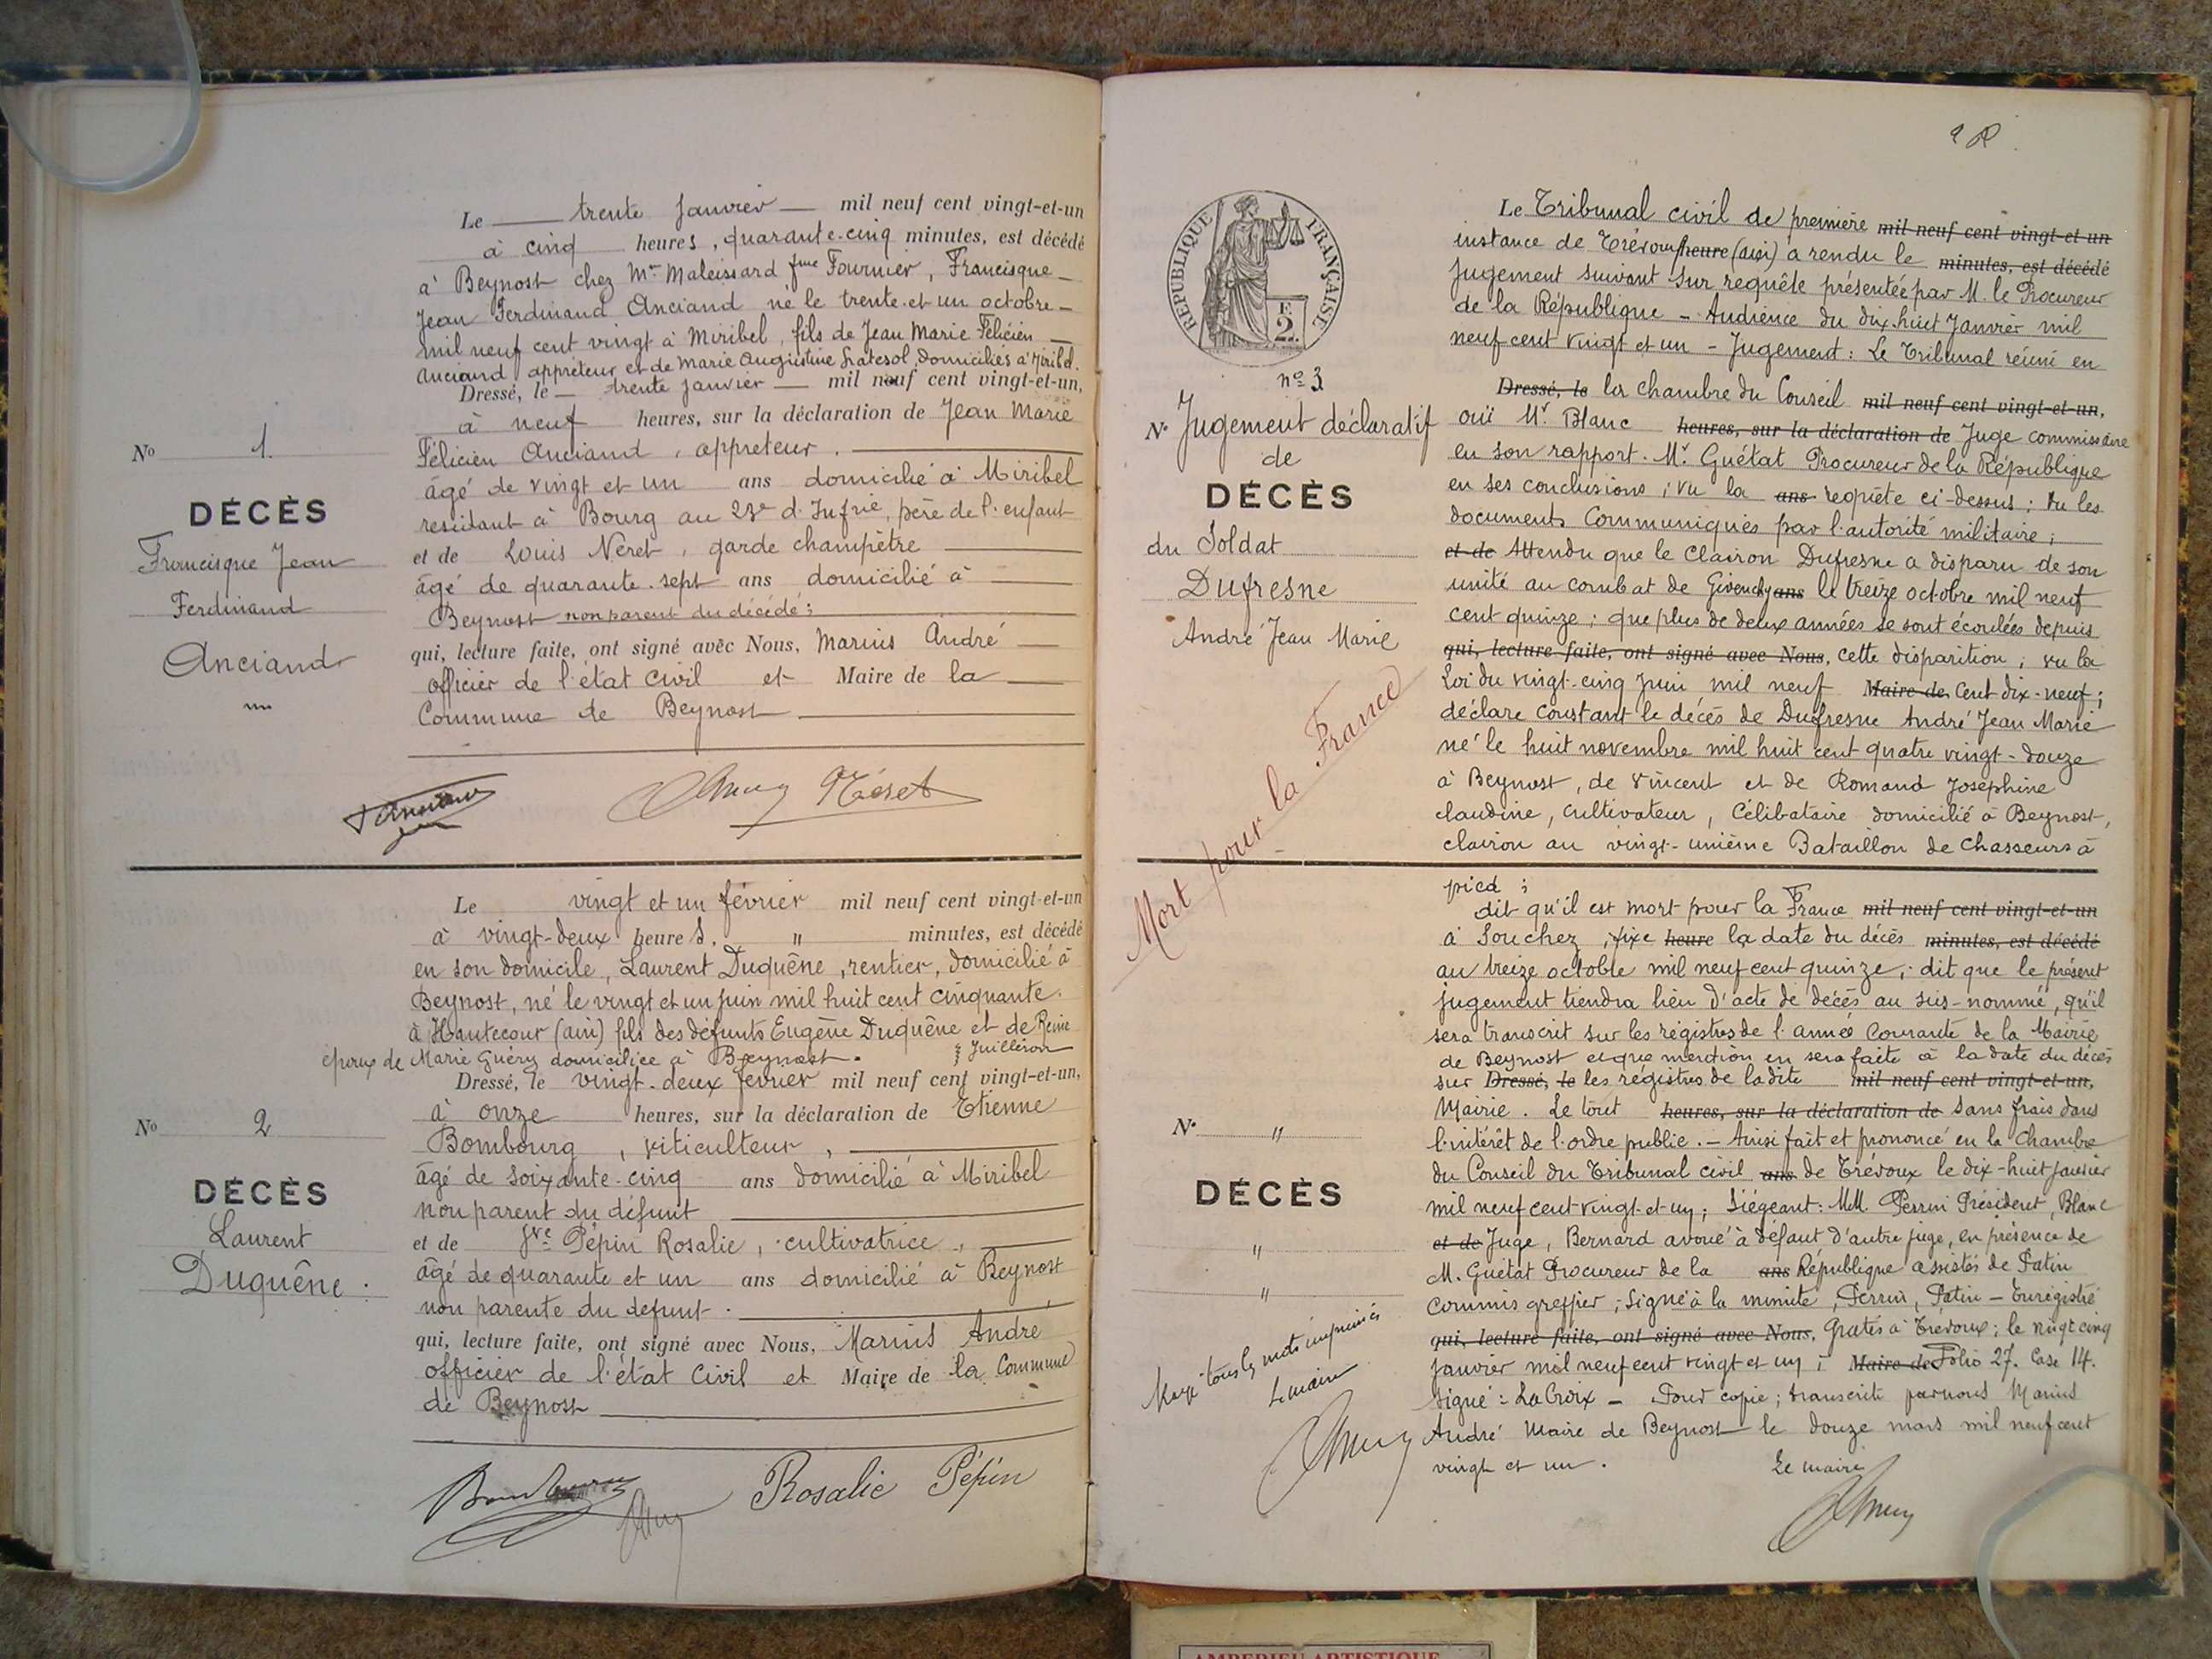 Le trente Janvier mil neuf cent vingt-et-un
à cinq heures, quarante-cinq minutes, est décédé
à Beynost chez Mr Maleissard fme Fournier, Francisque
Jean Ferdinand Anciand né le trente et un octobre
mil neuf cent vingt à Miribel, fils de Jean Marie Félicien
Anciand appréteur et de Marie Augustine domiciliés à Miribel.
Dressé, le trente janvier mil neuf cent vingt-et-un,
à neuf heures, sur la déclaration de Jean Marie
Félicien Anciand, appreteur.
âgé de vingt et un ans domicilié à Miribel
residant à Bourg au 23e d'Infrie, père de l'enfant
et de Louis Néret, garde champêtre
âgé de quarante-sept ans domicilié à
Beynost non parent du décédé;
qui, lecture faite, ont signé avec Nous, Marius André
officier de l'état civil et Maire de la
Commune de Beynost
No 1
DÉCÈS
Francisque Jean
Ferdinand
Anciand
Néret
Le vingt et un février mil neuf cent vingt-et-un
à vingt-deux heures, " minutes, est décédé
en son domicile, Laurent Duquêne, rentier, domicilié à
Beynost, né le vingt et un juin mil huit cent cinquante.
à Hautecour (ain) fils des défunts Eugène Duquêne et de Reine
Juilleron
époux de Marie Guéry domiciliée à Beynost.
Dressé, le vingt-deux février mil neuf cent vingt-et-un,
à onze heures, sur la déclaration de Etienne
Bombourg, viticulteur,
âgé de soixante-cinq ans domicilié à Miribel
non parent du défunt
et de fve Pépin Rosalie, cultivatrice,
âgé de quarante et un ans domicilié à Beynost
non parente du défunt.
qui, lecture faite, ont signé avec Nous, Marius André
officier de l'état civil et Maire de la Commune
de Beynost
No 2
DÉCÈS
Laurent
Duquêne.
Rosalie Pépin
RÉPUBLIQUE FRANÇAISE
F.
2.
no 3
N. Jugement déclaratif
de
DÉCÈS
du Soldat
Dufresne
André Jean Marie
Mort pour la France
Le Tribunal civil de première mil neuf cent vingt-et-un
instance de Trévoux heure (ain) a rendu le minutes, est décédé
jugement suivant sur requête présentée par M. le Procureur
de la République - Audience du dix-huit Janvier mil
neuf cent vingt et un - Jugement: Le Tribunal réuni en
Dressé, le la chambre du Conseil mil neuf cent vingt-et-un,
ouï Mr. Blanc heures, sur la déclaration de Juge commissaire
en son rapport. Mr. Guétat Procureur de la République
en ses conclusions; vu la ans requête ci-dessus; vu les
documents communiqués par l'autorité militaire;
et de Attendu que le Clairon Dufresne a disparu de son
unité au combat de Givenchy ans le treize octobre mil neuf
cent quinze; que plus de deux années se sont écoulées depuis
qui, lecture faite, ont signé avec Nous, cette disparition; vu la
Loi du vingt-cinq juin mil neuf Maire de cent dix-neuf;
déclare constant le décès de Dufresne André Jean Marie
né le huit novembre mil huit cent quatre vingt-douze
à Beynost, de Vincent et de Romand Joséphine
claudine, cultivateur, célibataire domicilié à Beynost,
clairon au vingt-unième Bataillon de Chasseurs à
pied;
dit qu'il est mort pour la France mil neuf cent vingt-et-un
à Souchez; fixe heure la date du décès minutes, est décédé
au treize octobre mil neuf cent quinze; dit que le présent
jugement tiendra lieu d'acte de décès au sus-nommé, qu'il
sera transcrit sur les régistres de l'année courante de la Mairie
de Beynost et que mention en sera faite à la date du décès
sur Dressé, le les régistres de ladite mil neuf cent vingt-et-un,
Mairie. Le tout heures, sur la déclaration de sans frais dans
l'intérêt de l'ordre public. - Ainsi fait et prononcé en la Chambre
du Conseil du Tribunal civil ans de Trévoux le dix-huit janvier
mil neuf cent vingt-et un; Siégeant: MM. Perrin Président, Blanc
et de Juge, Bernard avoué à défaut d'autre juge, en présence de
M. Guétat Procureur de la ans République assistés de Patin
commis greffier; signé à la minute, Perrin, Patin - Enregistré
qui, lecture faite, ont signé avec Nous, gratis à Trévoux; le vingt cinq
janvier mil neuf cent vingt et un; Maire de Folio 27. Case 14.
signé: La Croix - Pour copie; transcrite par nous Marius
André Maire de Beynost le douze mars mil neuf cent
vingt et un.
Le maire
N. "
DÉCÈS
"
"
Rayé tous les mots imprimés
Le maire
AMBERIEU ARTISTIQUE